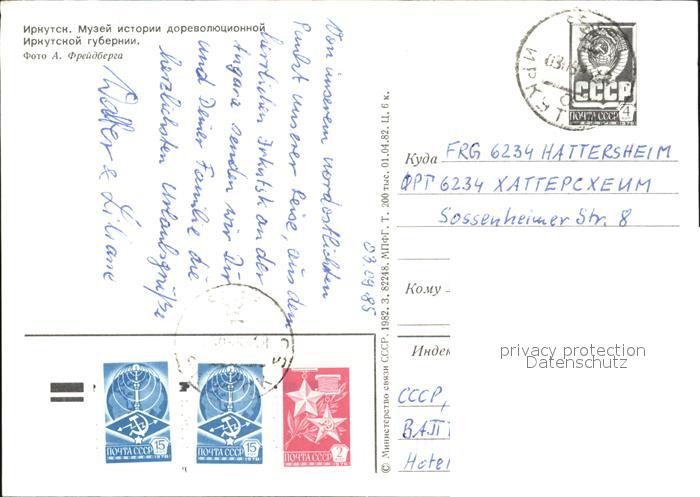 Иркутск. Музей истории дореволюционной
Иркутской губернии.
Фото А. Фрейдберга
Von unserem nordöstlichsten
Punkt unserer Reise, aus dem
herrlichen Irkutsk an der
Angara senden wir Dir
und Deiner Familie die
herzlichsten Urlaubsgrüße
Walter & Liliane
03.09.85
© Министерство связи СССР. 1982. З. 82248. МПФГ. Т. 200 тыс. 01.04.82. Ц. 6 к.
СССР
ПОЧТА СССР 4
1976
Куда FRG 6234 HATTERSHEIM
ФРГ 6234 ХАТТЕРСХЕИМ
Sossenheimer Str. 8
Кому
Индек
privacy protection
Datenschutz
СССР,
Hotel
15
ПОЧТА СССР 1976
15
ПОЧТА СССР 1976
ПОЧТА СССР 2
1976